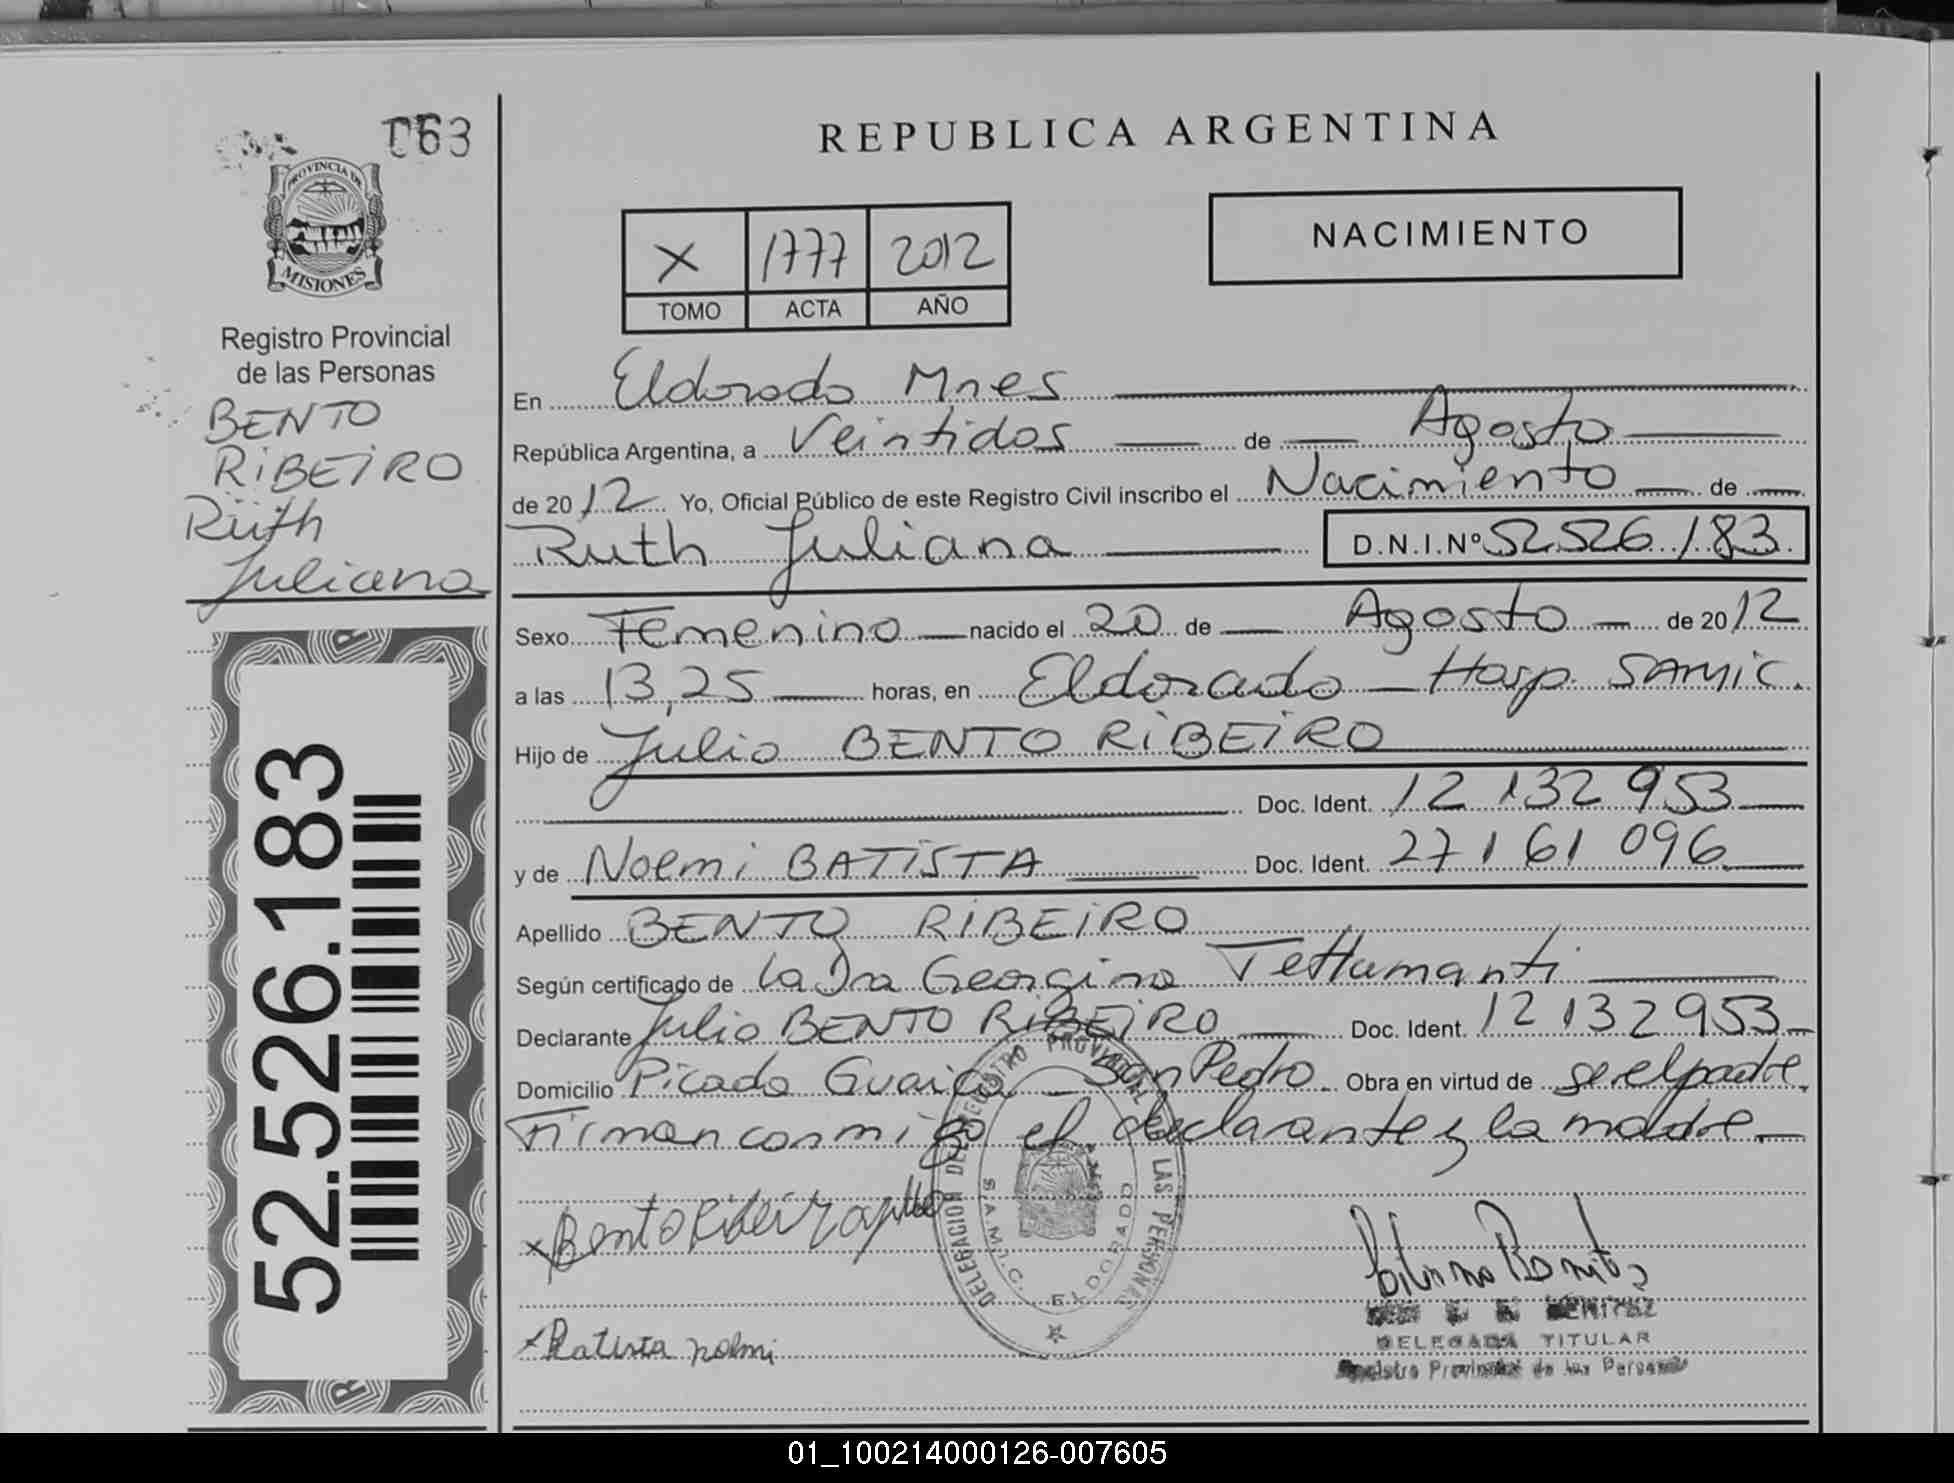 063
PROVINCIA DE
MISIONES
Registro Provincial
de las Personas
BENTO
RIBEIRO
Ruth
Juliana
52.526.183
REPUBLICA ARGENTINA
X 1777 2012
TOMO ACTA AÑO
NACIMIENTO
En Eldorado Mnes
República Argentina, a Veintidos de Agosto
de 2012 Yo, Oficial Público de este Registro Civil inscribo el Nacimiento de
Ruth Juliana D.N.I.Nº 52.526.183
Sexo Femenino nacido el 20 de Agosto de 2012
a las 13,25 horas, en Eldorado - Hosp. SAMIC.
Hijo de Julio BENTO RIBEIRO
Doc. Ident. 12 132 953
y de Noemi BATISTA Doc. Ident. 27 161 096
Apellido BENTO RIBEIRO
Según certificado de la Dra Georgina Tettamanti
Declarante Julio BENTO RIBEIRO Doc. Ident. 12 132 953
Domicilio Picada Guaira - San Pedro Obra en virtud de ser el padre.
Firman conmigo el declarante y la madre
DELEGACION DEL REGISTRO PROVINCIAL DE LAS PERSONAS
S.A.M.I.C. ELDORADO
x Bento Ribeiro
x Batista noemi
BENITEZ
DELEGADA TITULAR
Registro Provincial de las Personas
01_100214000126-007605